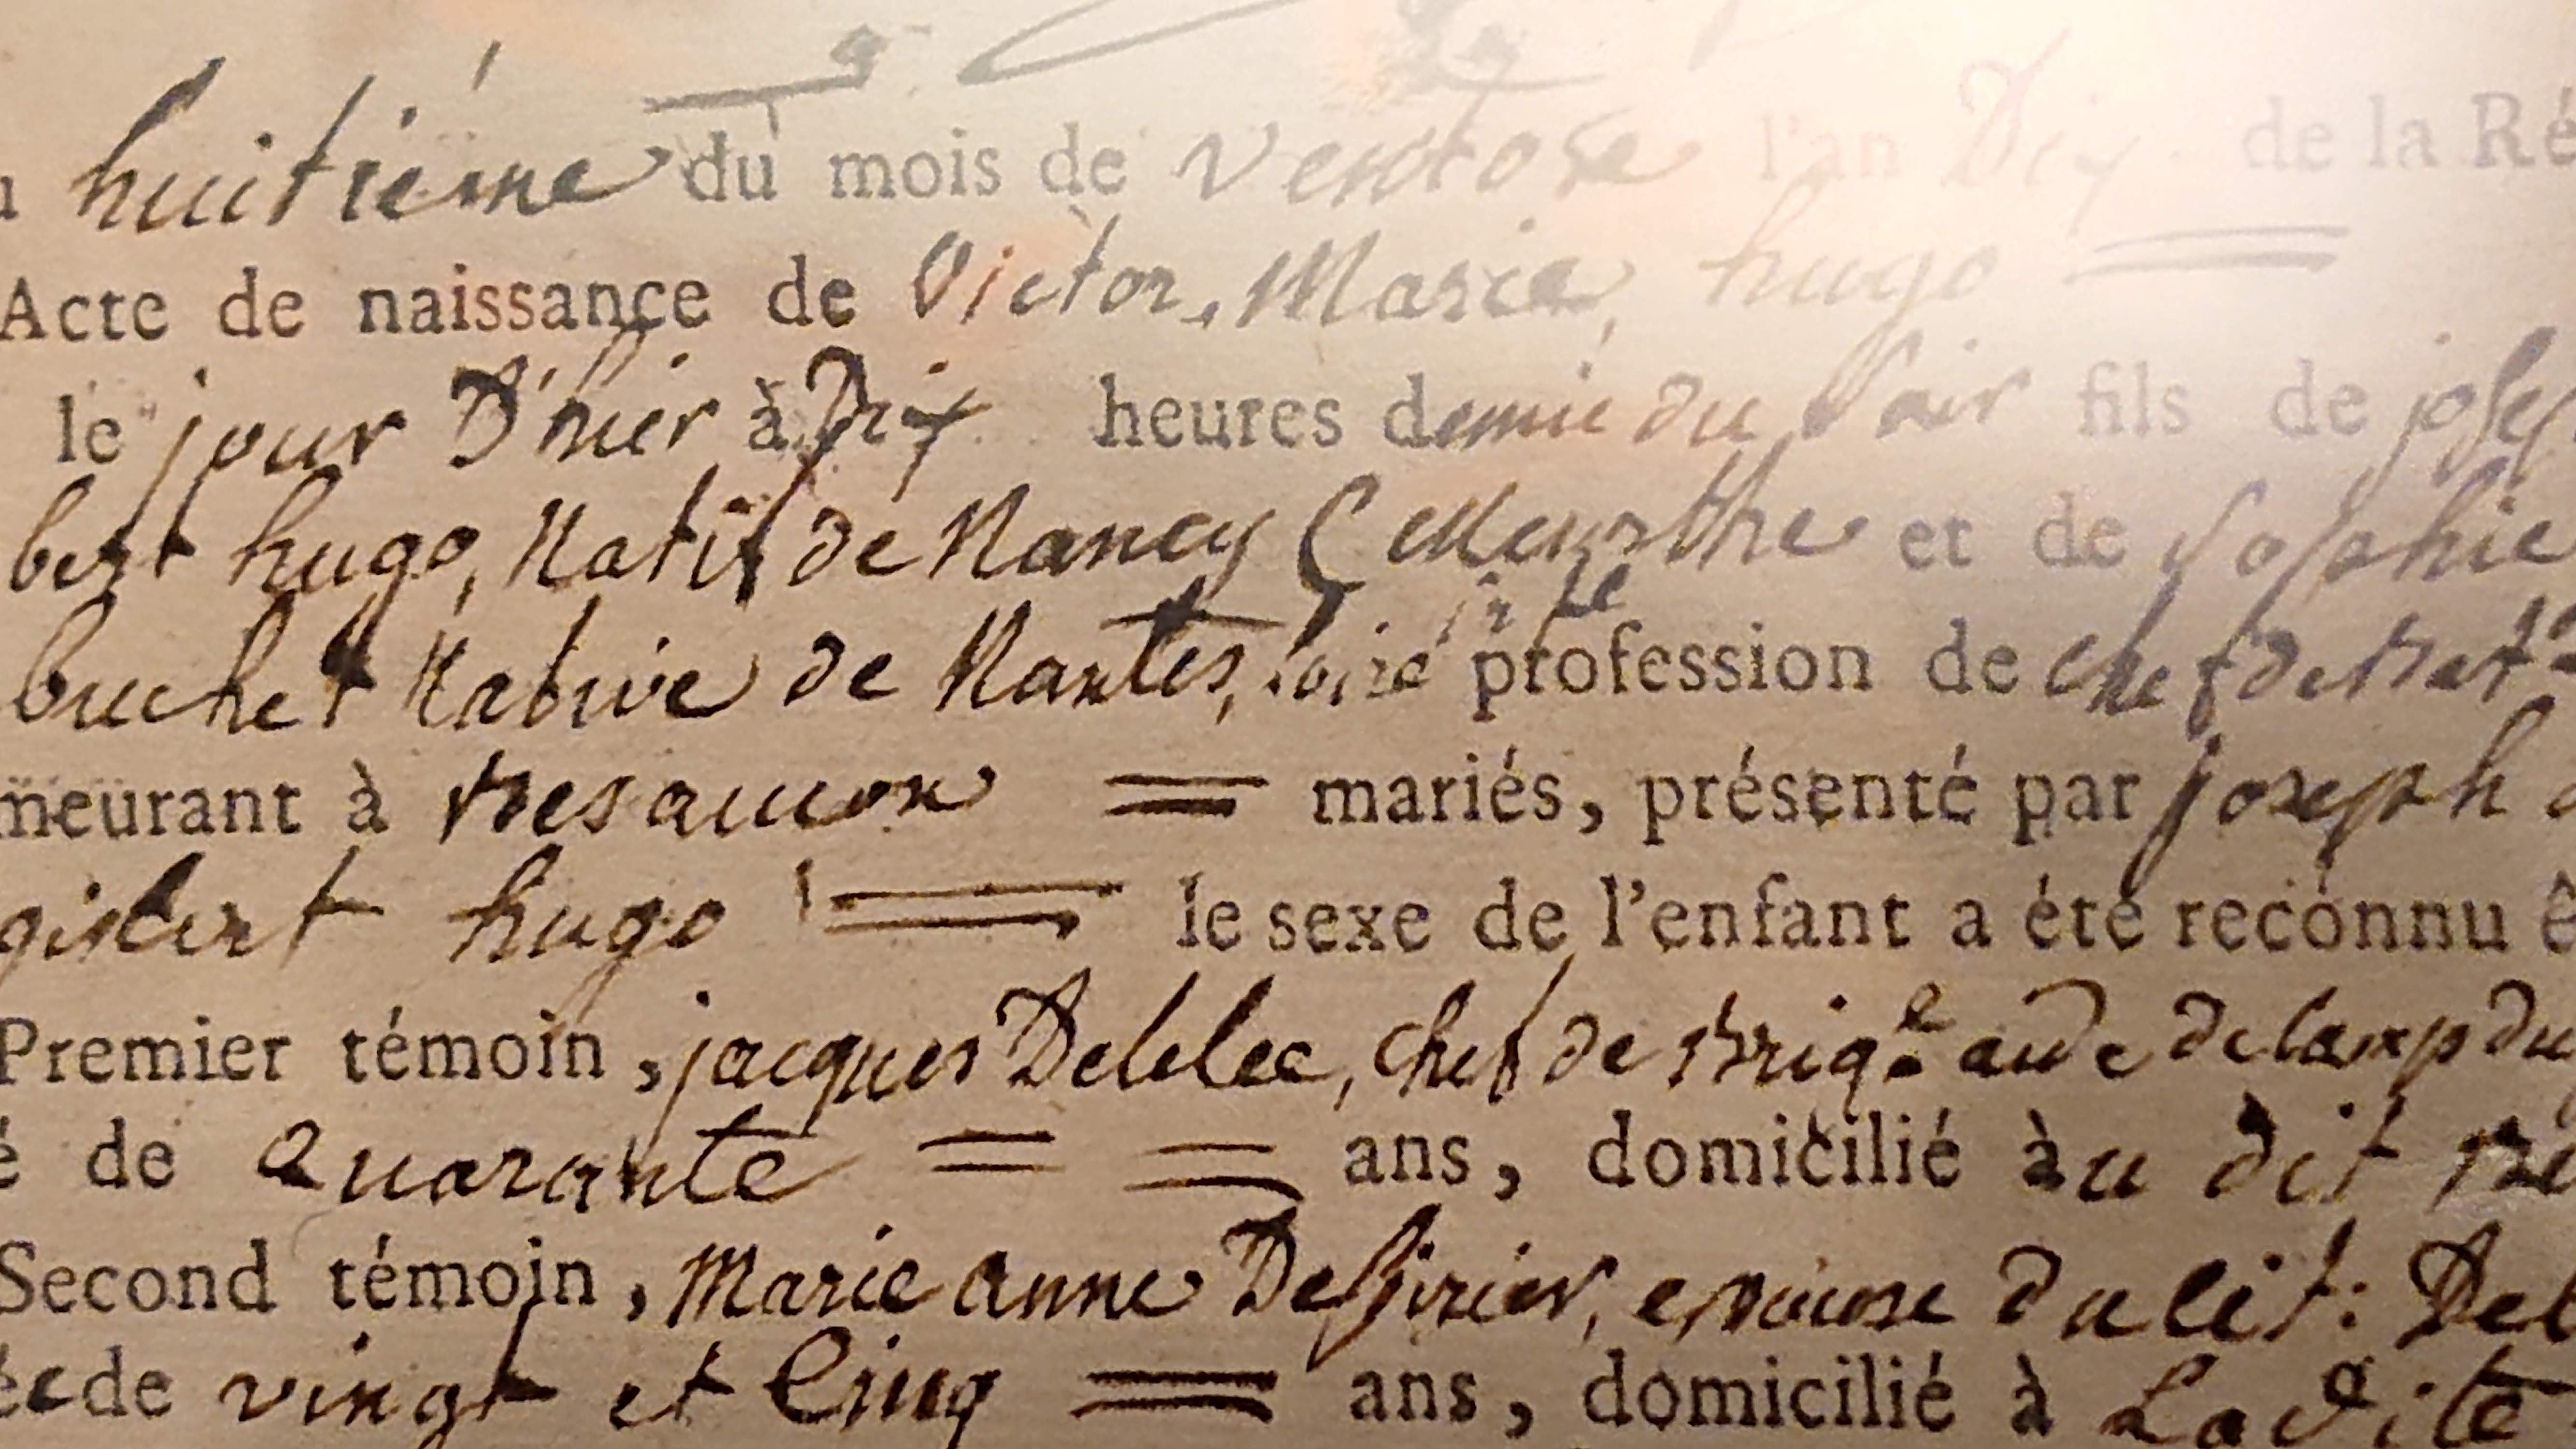 huitième du mois de Ventose l'an Dix de la Ré
Acte de naissance de Victor, Marie, hugo
le jour D'hier à Dix heures demie du Soir fils de josep
bert hugo, Natif de Nancy (Meurthe et de Sophie
buchet Native de Nantes, Loire inf.re profession de chef de Bat
meurant à Besançon mariés, présenté par joseph
gisbert hugo le sexe de l'enfant a été reconnu ê
Premier témoin, jacques Delelee, chef de Brig.e aide de camp du
é de Quarante ans, domicilié àu dit Be
Second témoin, Marie anne Dessirier, epouse du dit: Del
ée de vingt et Cinq ans, domicilié à Ladite